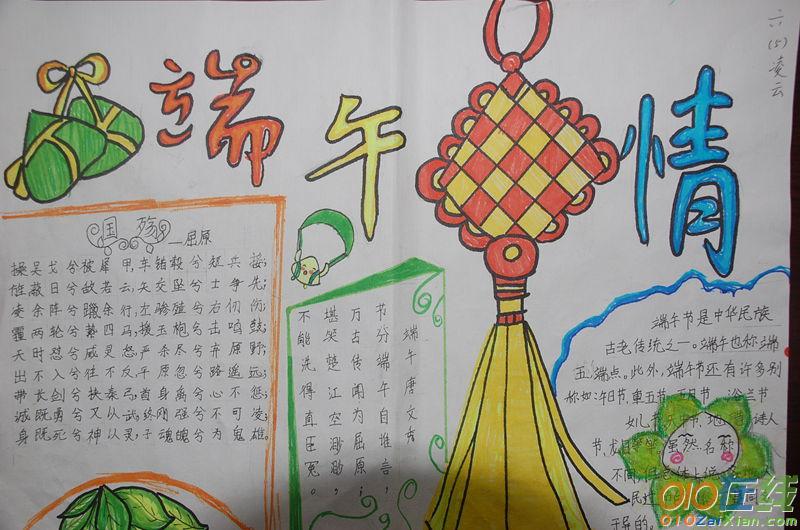 六(5)凌云
端午情
国殇
——屈原
操吴戈兮被犀甲,车错毂兮短兵接;
旌蔽日兮敌若云,矢交坠兮士争先;
凌余阵兮躐余行,左骖殪兮右刃伤;
霾两轮兮絷四马,援玉枹兮击鸣鼓;
天时怼兮威灵怒,严杀尽兮弃原野;
出不入兮往不反,平原忽兮路遥远;
带长剑兮挟秦弓,首身离兮心不惩;
诚既勇兮又以武,终刚强兮不可凌;
身既死兮神以灵,子魂魄兮为鬼雄。
端午 唐 文秀
节分端午自谁言,
万古传闻为屈原;
堪笑楚江空渺渺,
不能洗得直臣冤。
端午节是中华民族
古老传统之一。端午也称端
五,端点。此外,端午节还有许多别
称如:午日节、重五节
浴兰节
儿节
诗人
节,
虽然名称
不同,但总体上
人
民
010在线
010ZaiXian.com